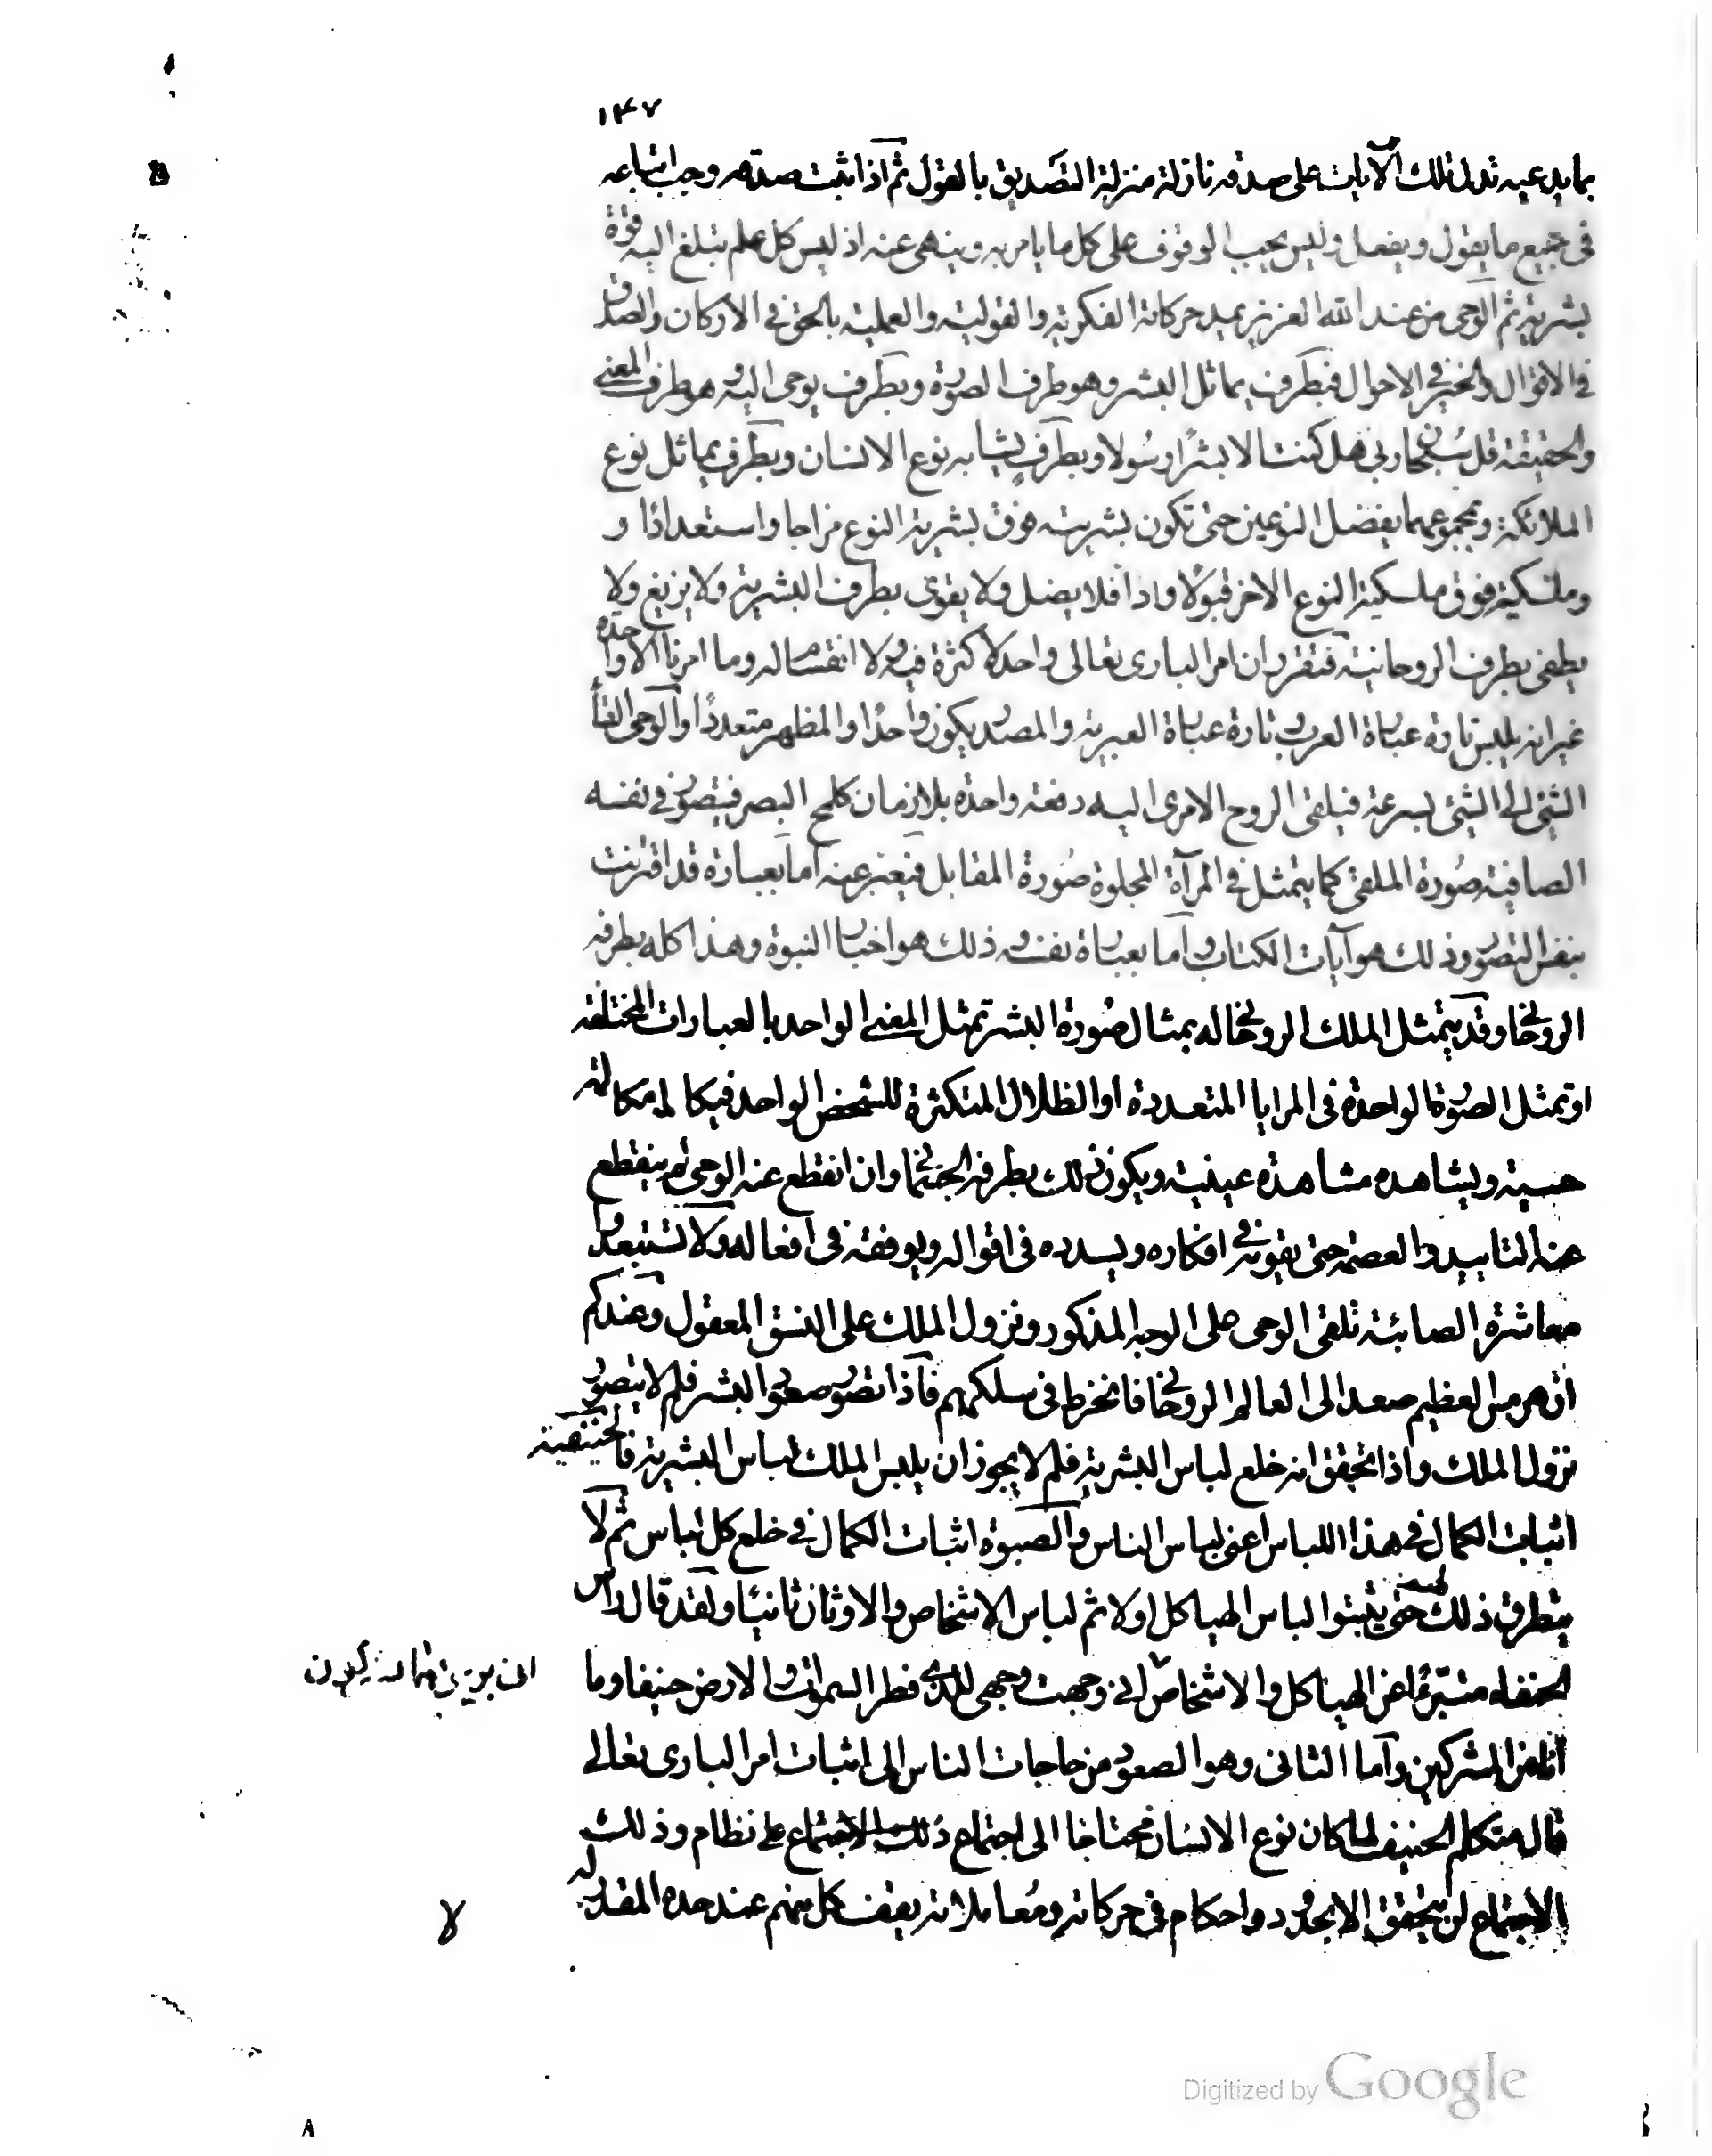 ١٤٧
بما يدعيه تدل تلك الآيات على صدقه نازلة منزلة التصديق بالقول ثم اذا ثبت صدقه وجب اتباعه
فى جميع ما يقول ويفعل وليس يجب الوقوف على كل ما يامر به وينهى عنه اذ ليس كل علم تبلغ اليه قوة
بشرية ثم الوحى من عند الله العزيز يمد حركاته الفكرية والقولية والعملية بالحق فى الاركان والصدق
فى الاقوال والخير فى الاحوال فبطرف يماثل البشر وهو طرف الصورة وبطرف يوحى اليه وهو طرف المعنى
والحقيقة قل سبحان ربى هل كنت الا بشرًا رسولا وبطرف يشابه نوع الانسان وبطرف يماثل نوع
الملائكة وبمجموعهما يفضل النوعين حتى تكون بشريته فوق بشرية النوع مزاجا واستعدادًا و
وملكيته فوق ملكية النوع الاخر قبولًا واداً فلا يضل ولا يغوى بطرف البشرية ولا يزيغ ولا
يطغى بطرف الروحانية فتقرر ان امر البارى تعالى واحد لا كثرة فيه ولا انقسام له وما امرنا الا واحدة
غير انه يلبس تارة عبارة العرب وتارة عبارة العبرية والمصدر يكون واحدًا والمظهر متعددًا والوحى القاء
الشئ الى الشئ بسرعة فيلقى الروح الامرى اليه دفعة واحدة بلا زمان كلمح البصر فيتصور فى نفسه
الصافية صُورة الملقى كما يتمثل فى المرآة المجلوة صُورة المقابل فيعبر عنه اما بعبارة قد اقترنت
بنفس التصور وذلك هو آيات الكتاب واما بعبارة نفسه وذلك هو اخبار النبوة وهذا كله بطرفه
الروحانى وقد يتمثل الملك الروحانى له بمثال صُورة البشر تمثل المعنى الواحد بالعبارات المختلفة
او تمثل الصورة الواحدة فى المرايا المتعددة او الظلال المتكثرة للشخص الواحد فيكالمه مكالمة
حسية ويشاهده مشاهدة عينية ويكون ذلك بطرفه الجسمانى وان انقطع عنه الوحى لم ينقطع
عنه التاييد والعصمة حتى يقويه فى افكاره ويسدده فى اقواله ويوفقه فى افعاله ولا تستبعدوا
معاشرة الصابئة تلقى الوحى على الوجه المذكور ونزول الملك على النسق المعقول وعندكم
ان هرمس العظيم صعد الى العالم الروحانى فانخرط فى سلكهم فاذا تصور صعود البشر فلم لا يتصور
نزول الملك واذا تحقق انه خلع لباس البشرية فلم لا يجوز ان يلبس الملك لباس البشرية فالحنيفية
اثبات الكمال فى هذا اللباس اعنى لباس الناس والصبوة اثبات الكمال فى خلع كل لباس ثم لا
يتطرق ذلك لهم حتى يثبتوا لباس الهياكل اولا ثم لباس الاشخاص والاوثان ثانيًا ولقد قال راس
الحنفاء متبرئًا عن الهياكل والاشخاص انى وجهت وجهى للذى فطر السموات والارض حنيفا وما
انا من المشركين واما الثانى وهو الصعود من حاجات الناس الى اثبات امر البارى تعالى
قال متكلم الحنيف لما كان نوع الانسان محتاجا الى اجتماع ذلك الاجتماع على نظام وذلك
الاجتماع لن يتحقق الا بحدود واحكام فى حركاته ومعاملاته يقف كل منهم عند حده المقدر له
لا
Digitized by Google